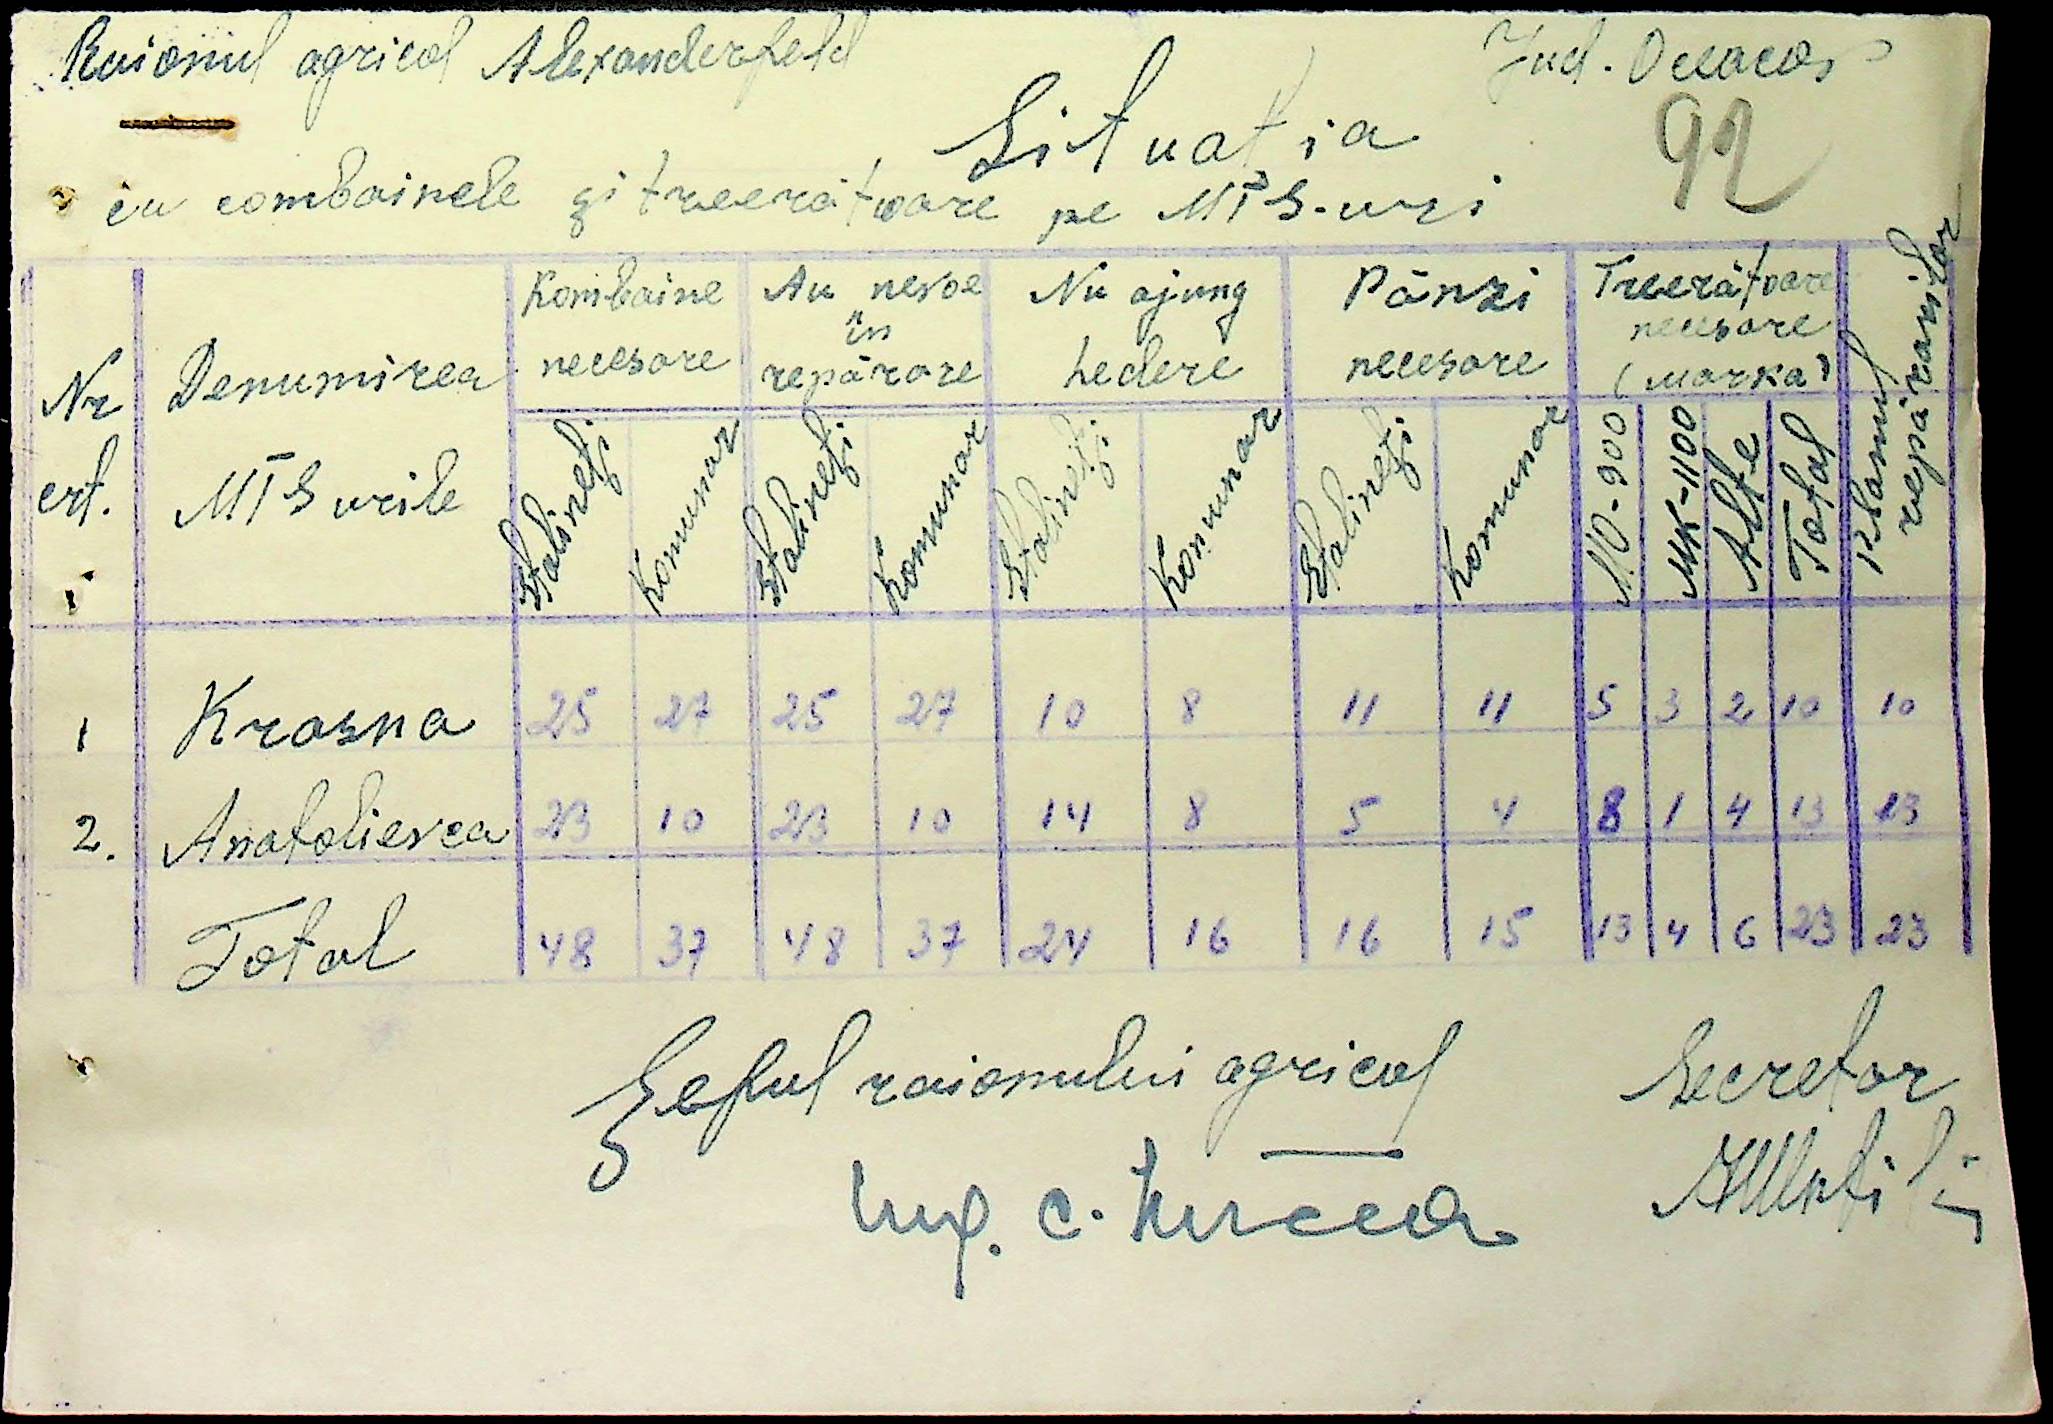 Raionul agricol Alexanderfeld
Jud. Oceacov
92
Situatia
cu combainele și treerătoare pe MTS-uri
Nr crt.
Denumirea MTS urile
Kombaine necesare
Au nevoe în repărare
Nu ajung hedere
Pânzi necesare
Treerătoare necesare (marka)
Planul repăramilor
Stalineți Komunar Stalineți Komunar Stalineți Komunar Stalineți Komunar MO-900 MK-1100 Alte Total
1 Krasna 25 27 25 27 10 8 11 11 5 3 2 10 10
2. Anatolievca 23 10 23 10 14 8 5 4 8 1 4 13 13
Total 48 37 48 37 24 16 16 15 13 4 6 23 23
Șeful raionului agricol
Secretor
Ing. C.